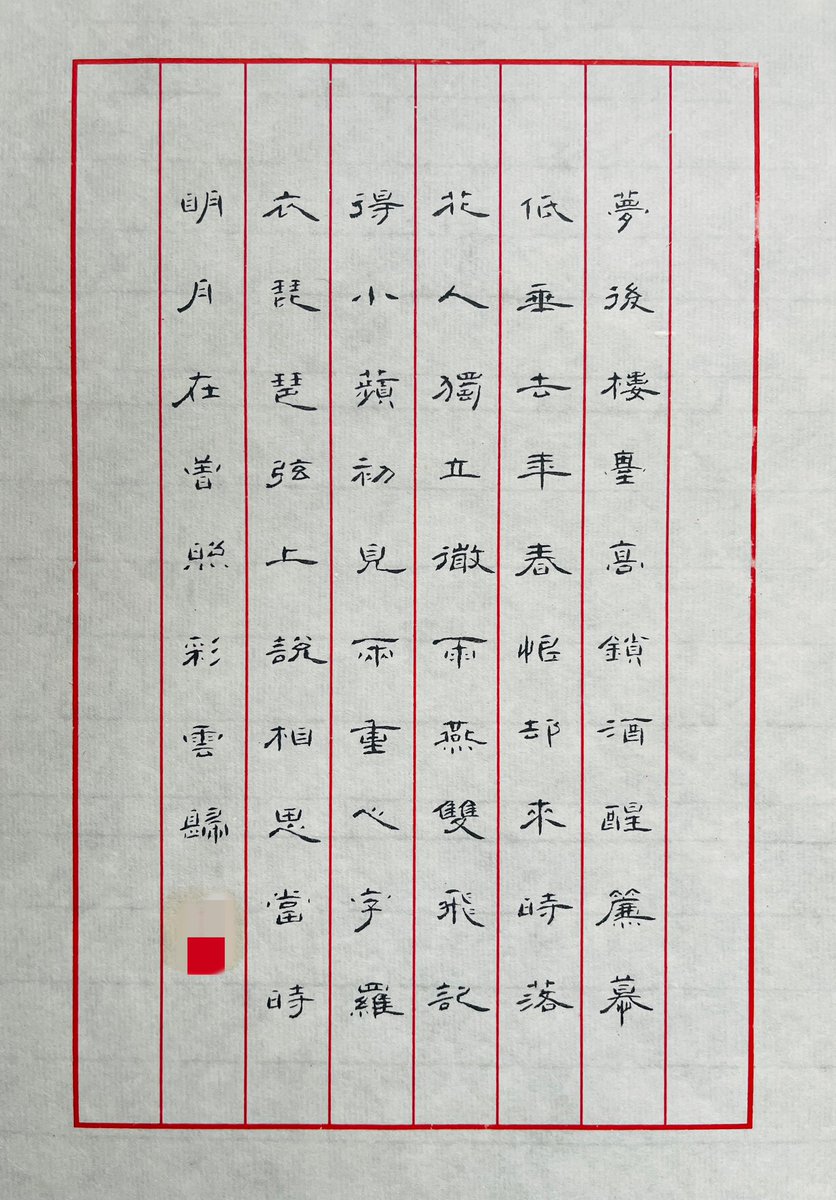 夢後樓臺高鎖酒醒簾幕
低垂去年春恨却來時落
花人獨立微雨燕雙飛記
得小蘋初見兩重心字羅
衣琵琶弦上說相思當時
明月在曾照彩雲歸